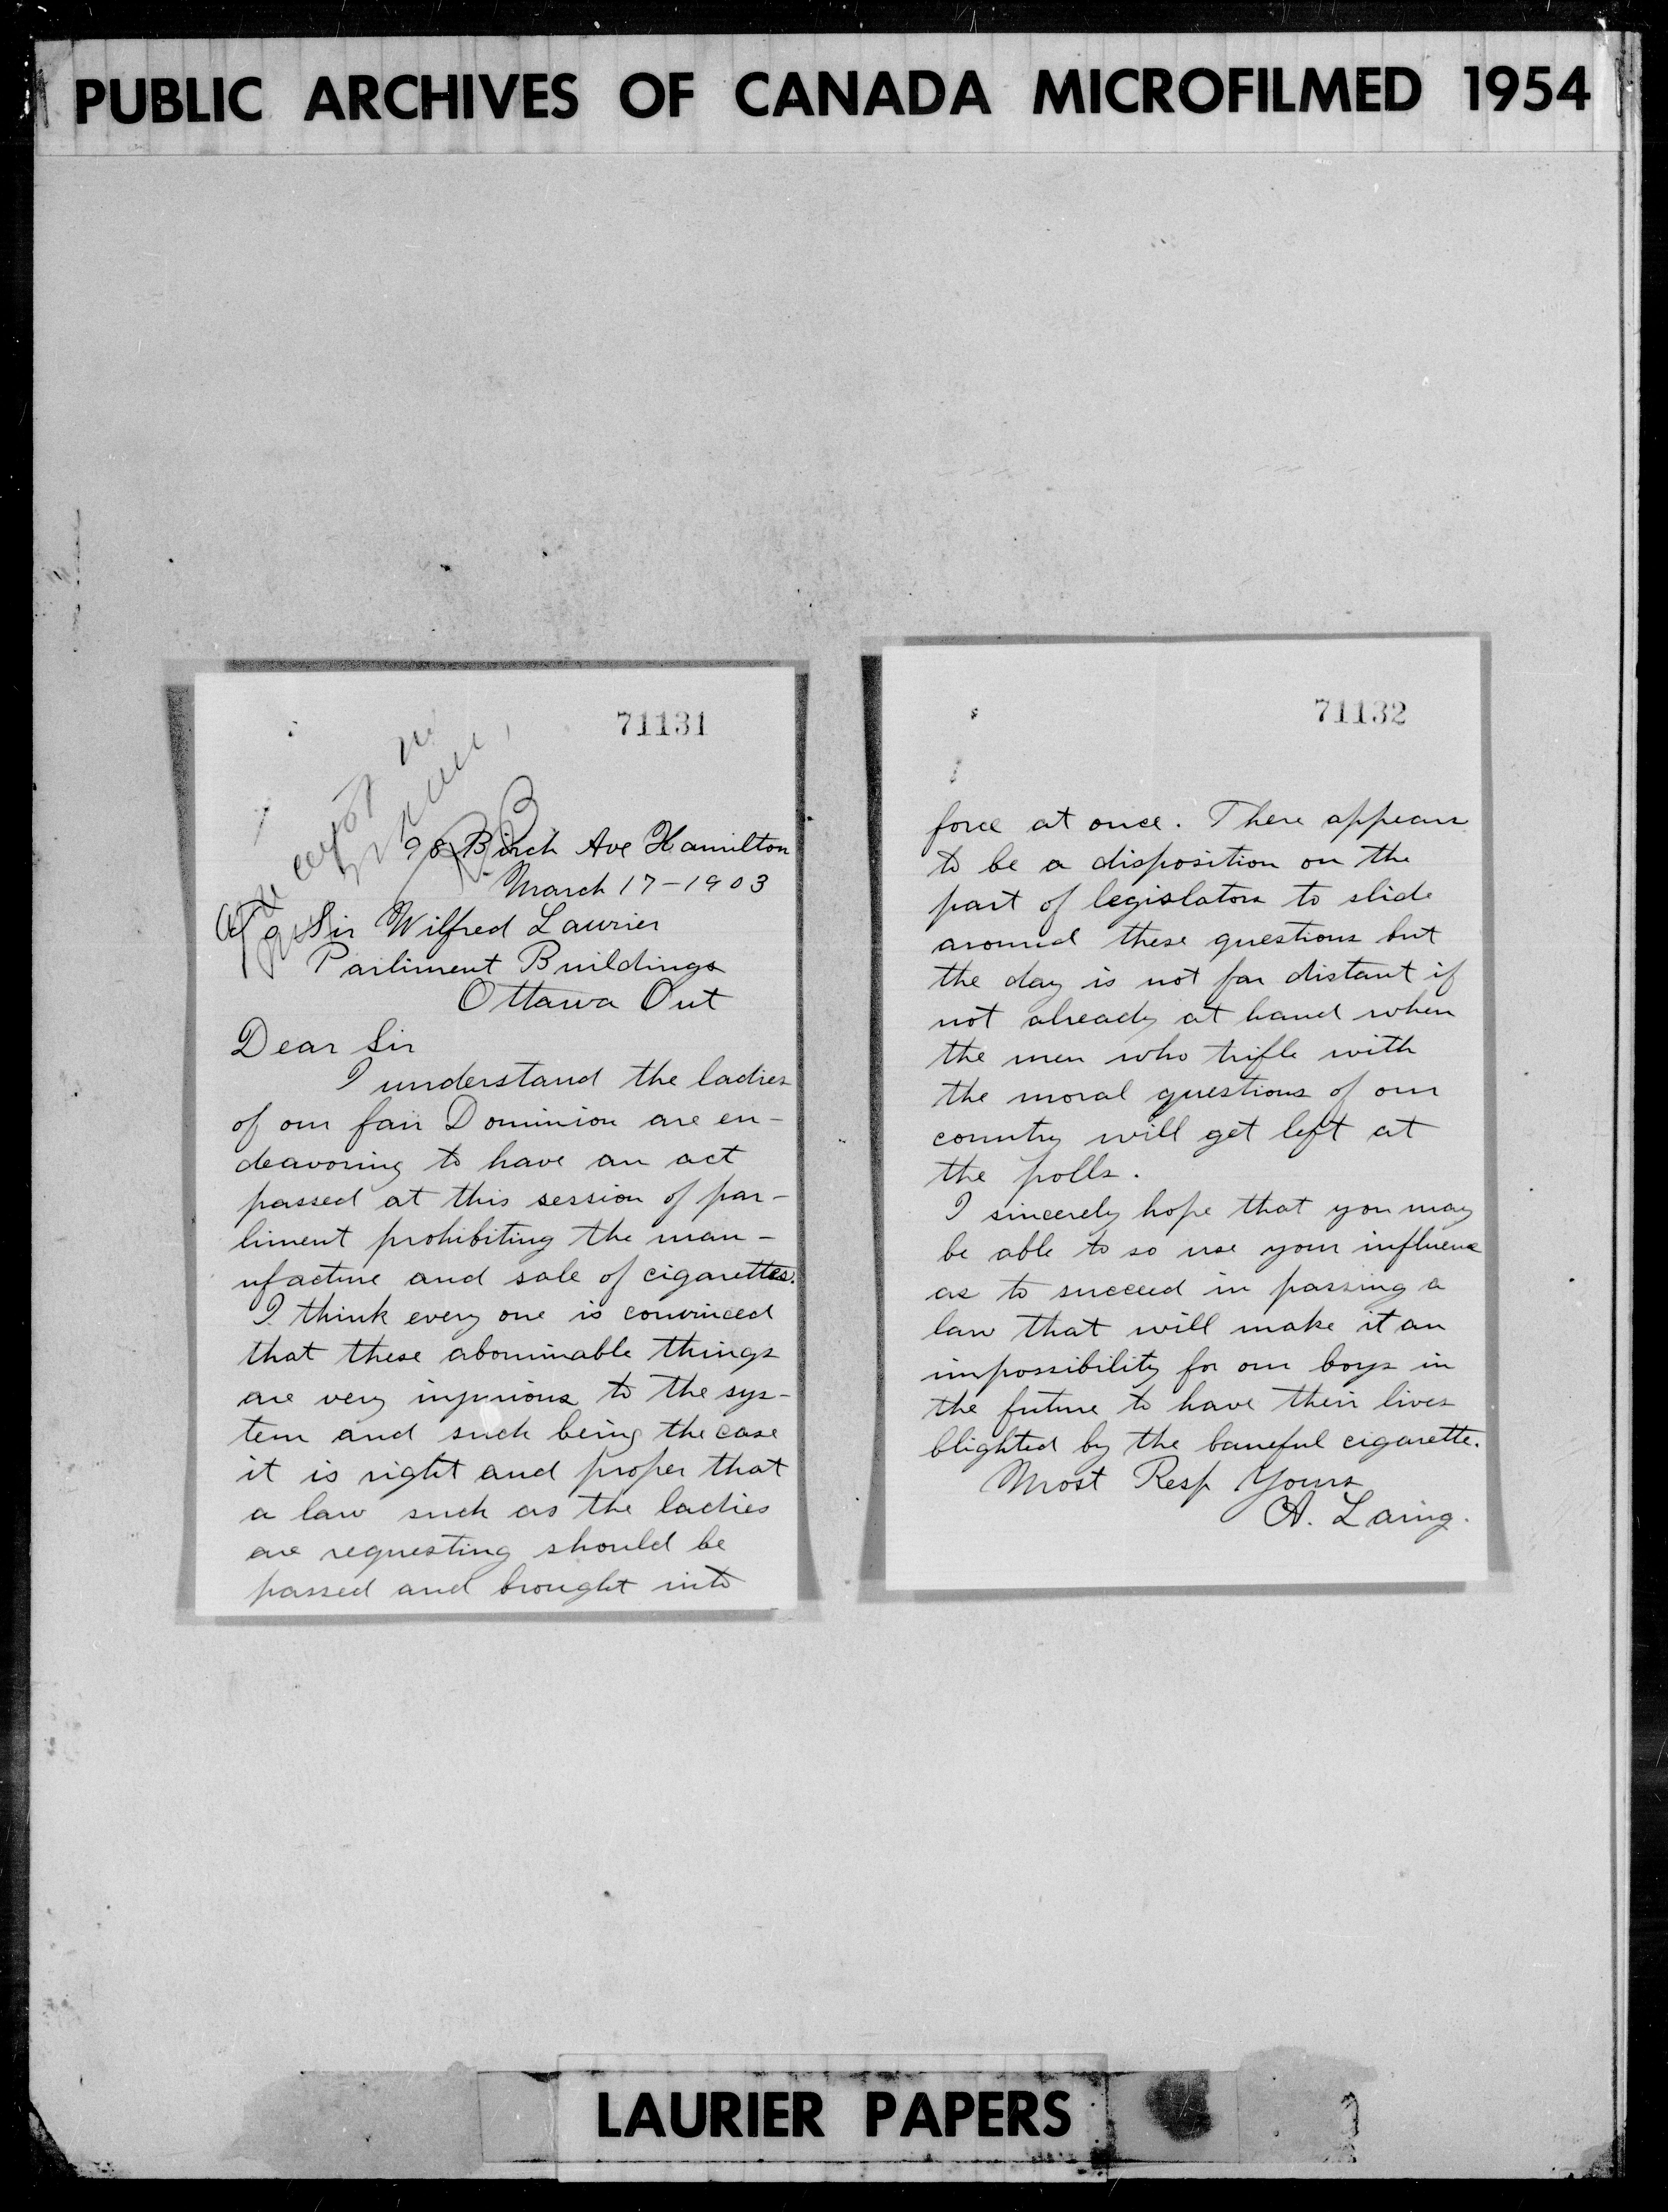 PUBLIC ARCHIVES OF CANADA MICROFILMED 1954
71131
98 Birch Ave Hamilton
March 17-1903
To Sir Wilfred Laurier
Parliment Buildings
Ottawa Ont
Dear Sir
I understand the ladies
of our fair Dominion are en-
deavoring to have an act
passed at this session of par-
liment prohibiting the man-
ufacture and sale of cigarettes.
I think every one is convinced
that these abominable things
are very injurious to the sys-
tem and such being the case
it is right and proper that
a law such as the ladies
are requesting should be
passed and brought into
71132
force at once. There appears
to be a disposition on the
part of legislators to slide
around these questions but
the day is not far distant if
not already at hand when
the men who trifle with
the moral questions of our
country will get left at
the polls.
I sincerely hope that you may
be able to so use your influence
as to succeed in passing a
law that will make it an
impossibility for our boys in
the future to have their lives
blighted by the baneful cigarette.
Most Resp Yours
A. Laing.
LAURIER PAPERS